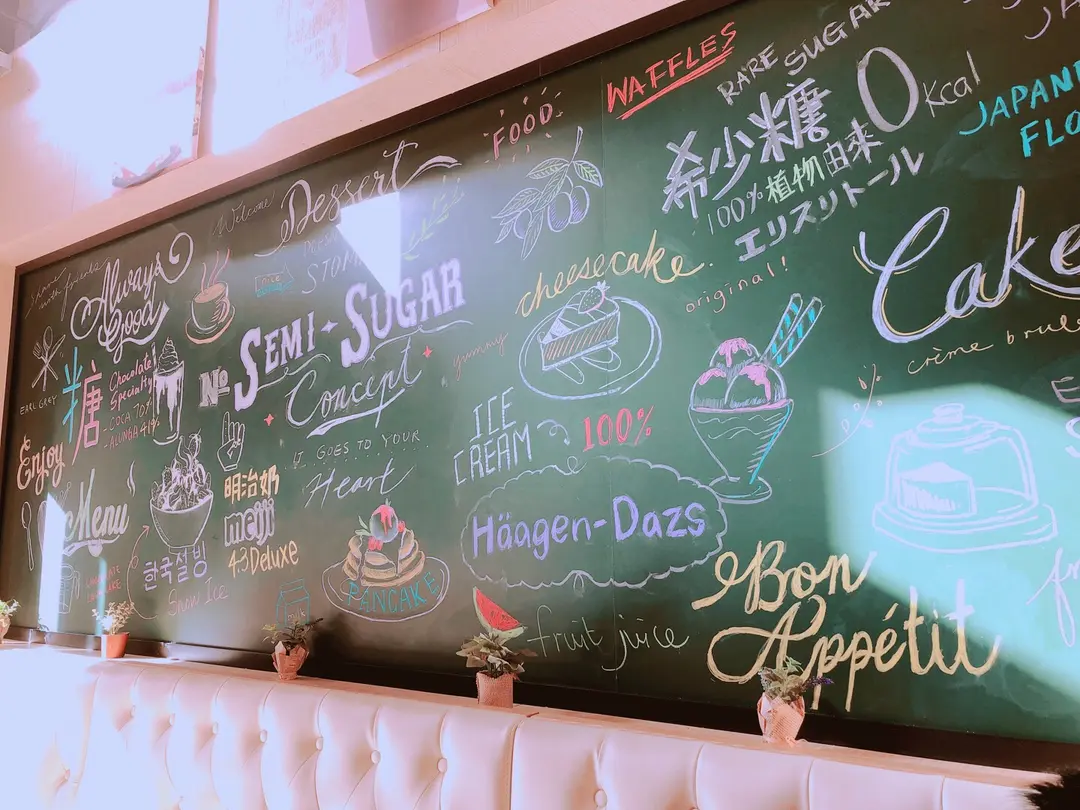 Share with friends
Always
Good
EARL GREY
糖
Chocolate
Specialty
- COCA 70%
- ALUNGA 41%
Enjoy
Menu
한국설빙
Snow Ice
Welcome
Dessert
№
SEMI-SUGAR
Concept
IT GOES TO YOUR
Heart
明治奶
meiji
4.3 Deluxe
PANCAKE
FOOD
yummy
cheesecake
ICE
CREAM
100%
Häagen-Dazs
fruit juice
WAFFLES
RARE SUGAR
希少糖 0 Kcal
100% 植物由来
エリスリトール
original!
JAPAN
FLO
Cake
crème brule
Bon
Appétit